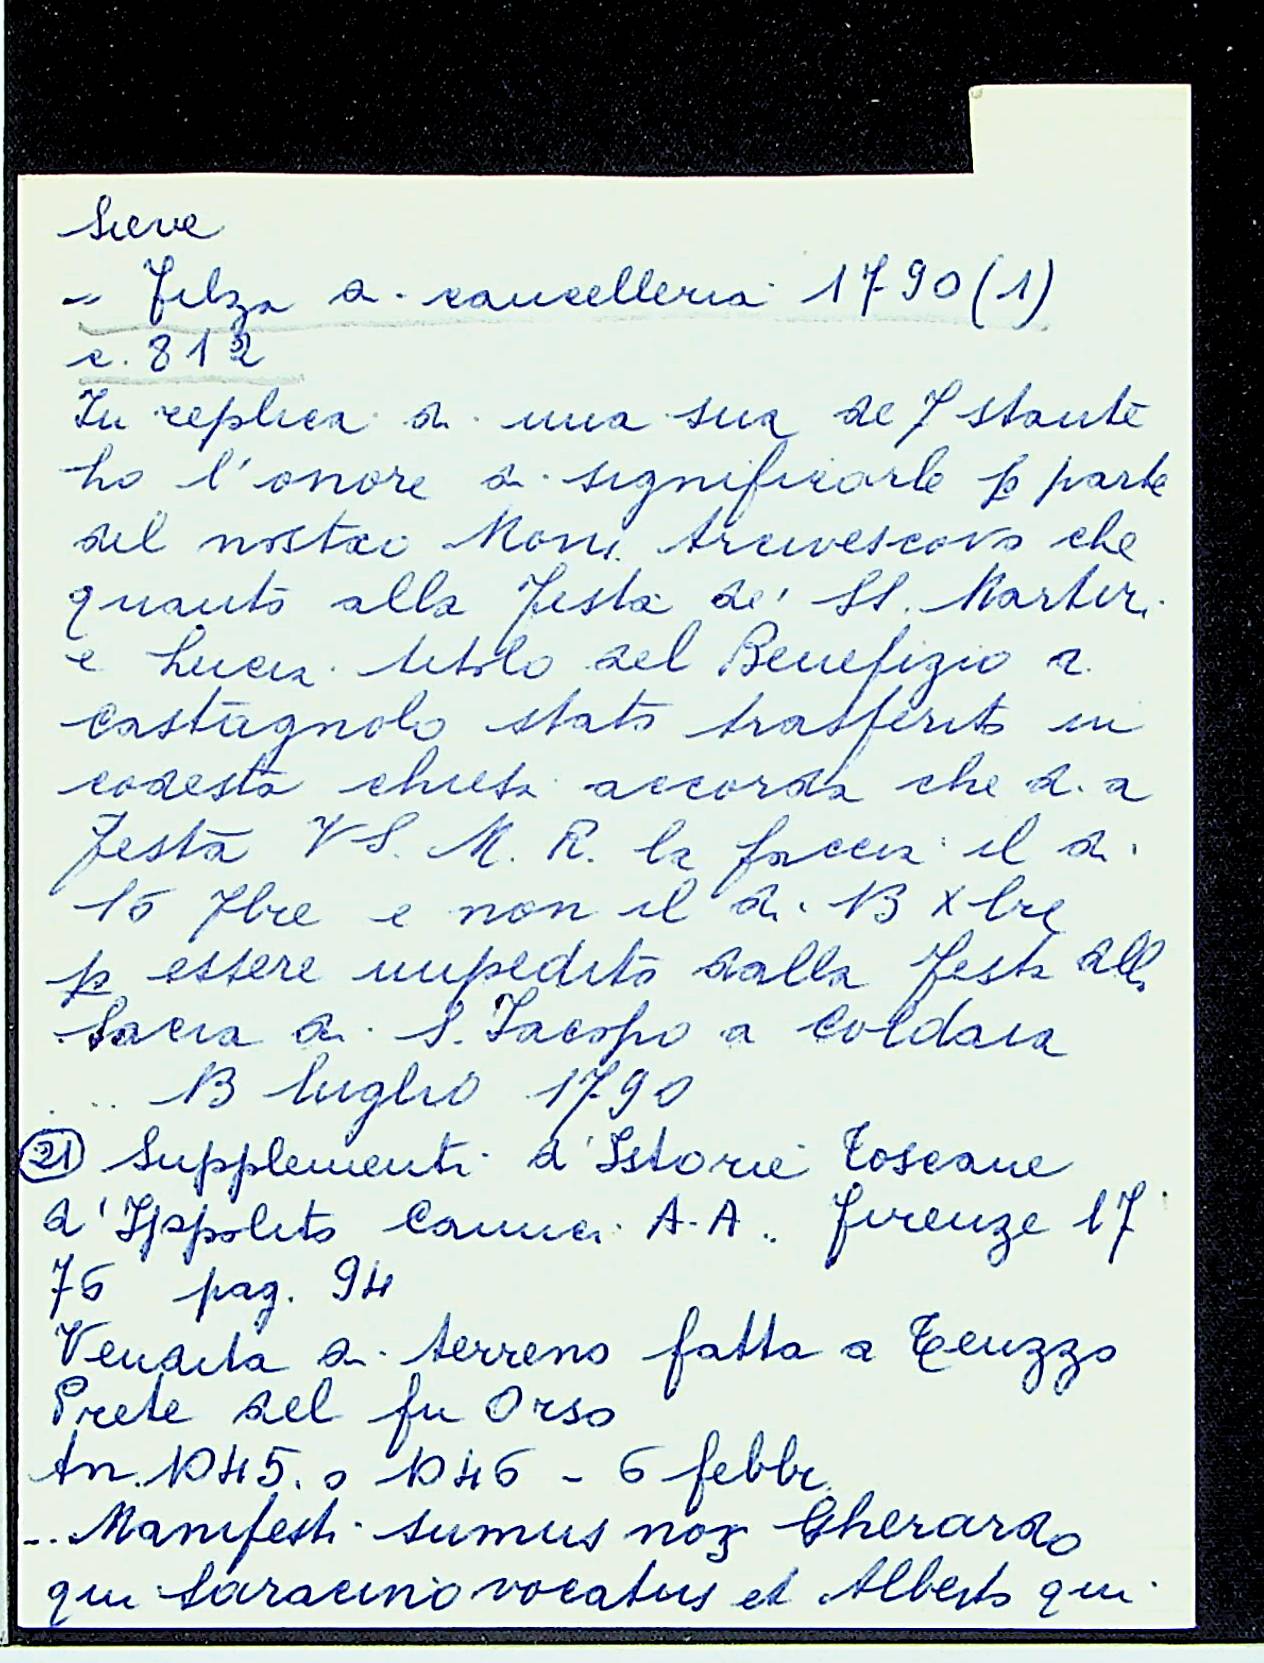 Sieve
- Filza di cancelleria 1790 (1)
c. 812
In replica di una sua de 7 stante
ho l'onore di significarle p parte
del nostro Mons. Arcivescovo che
quanto alla Festa de' SS. Martiri
e Lucia titolo del Benefizio a
Castagnolo stato trasferito in
codesta chiesa accorda che d.a
Festa VS. M. R. la faccia il di
16 7bre e non il di 13 Xbre
p essere impedito dalla Festa dell
Sacra di S. Jacopo a Coldaia
... 13 luglio 1790
(21) Supplementi d'Istorie Toscane
d'Ippolito Camici A-A. Firenze 17
76 pag. 94
Vendita di terreno fatta a Teuzzo
Prete del fu Orso
An. 1045. o 1046 - 6 febbr.
... Manifesti sumus nos Gherardo
qui Saracino vocatus et Alberto qui